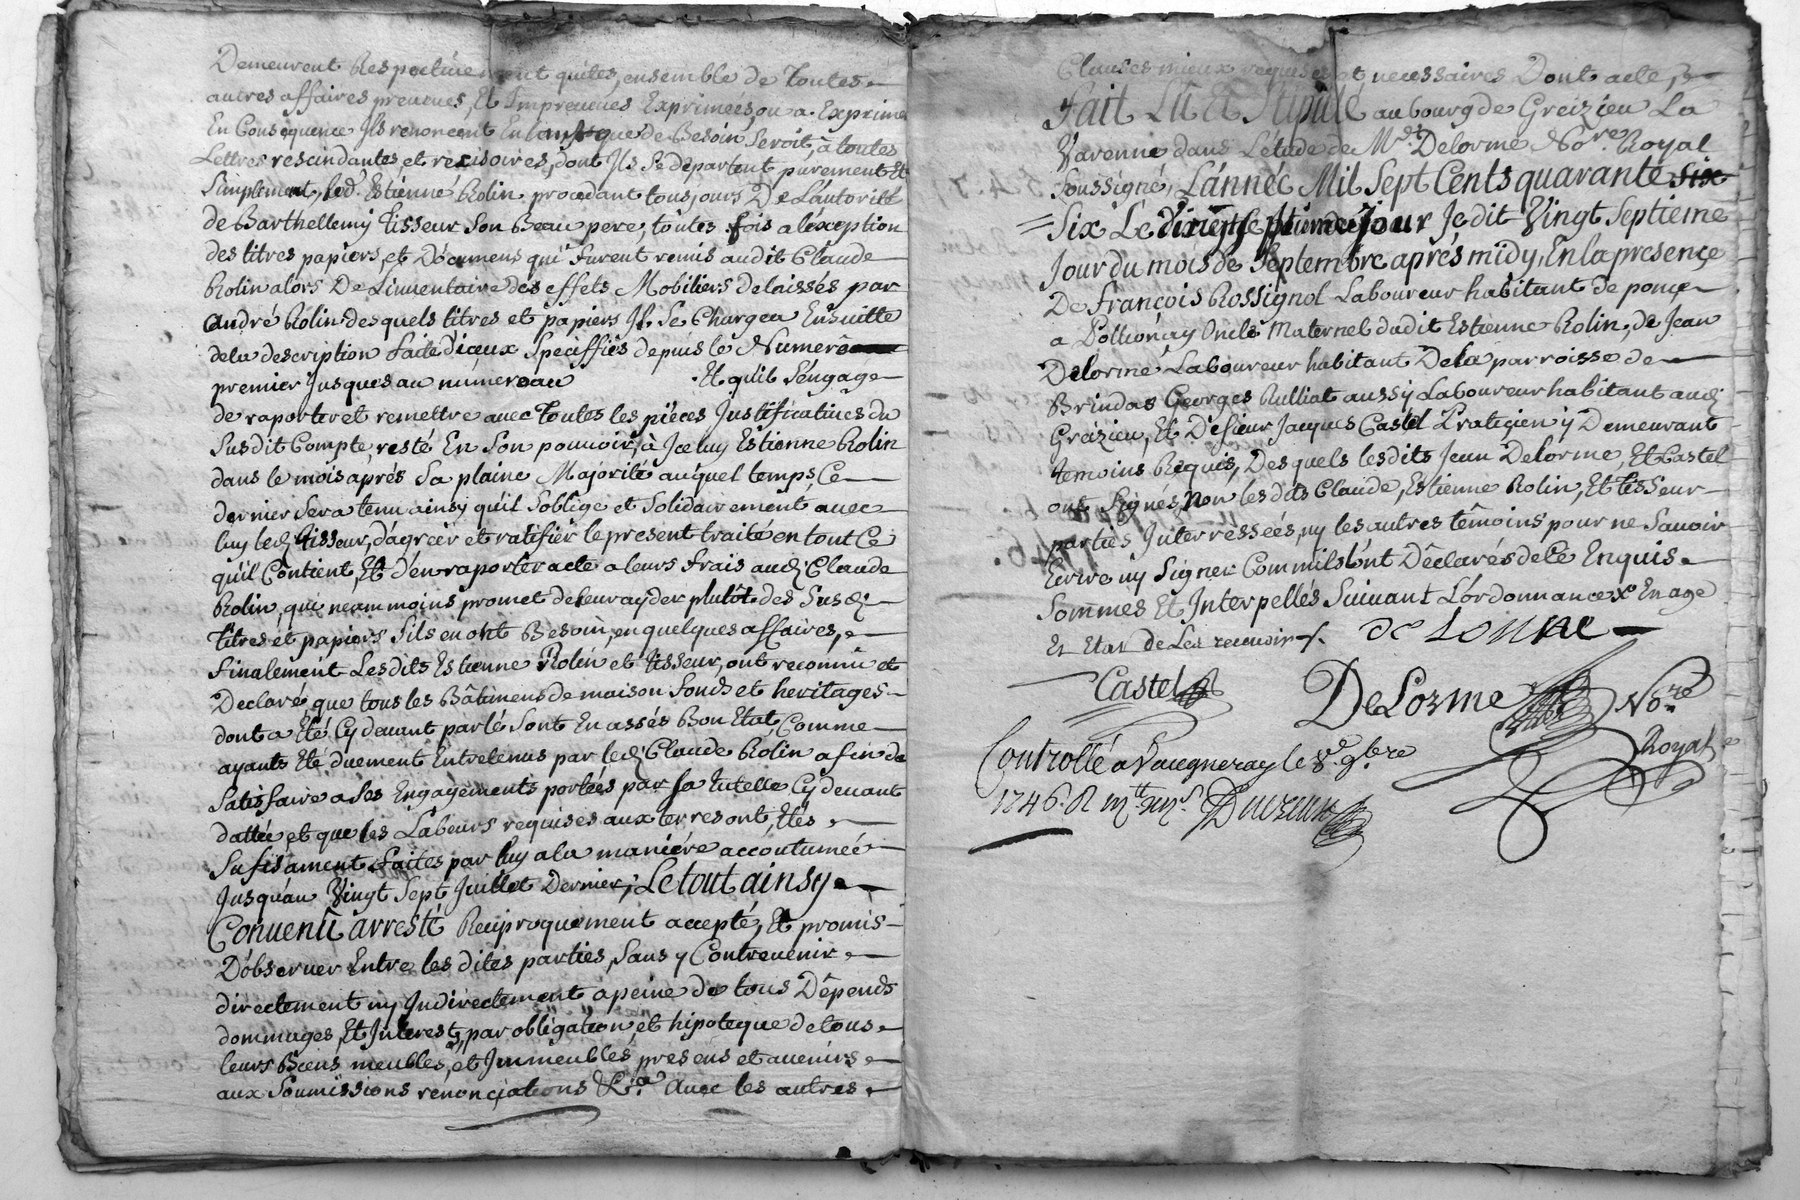 Demeurent Respectivement quites, ensemble de Toutes
autres affaires preueues, Et Impreueües Exprimées ou a Exprimer
En Consequence Ils renoncent En tant que de Besoin Seroit, à toutes
Lettres rescindantes et rescisoires, dont Ils Se departent purement Et
Simplement, led. Estienne Rolin procedant tousjours De L'autorité
de Barthellemy Tisseur Son Beau pere, toutes fois a l'éxception
des titres papiers, et Documens qui furent remis audit Claude
Rolin alors De L'inuentaire des effets Mobiliers delaissés par
André Rolin, desquels titres et papiers Il Se Chargea Ensuitte
dela description faite d'iceux Speciffiés depuis le Numerô
premier Jusques au numereau Et qu'il S'engage
de raporter et remettre auec Toutes les pièces Justificatiues du
Susdit Compte, resté En Son pouuoir, à Iceluy Estienne Rolin
dans le mois aprés Sa plaine Majorité auquel temps, Ce
dernier Sera tenu ainsy qu'il S'oblige et Solidairement auec
luy led. Tisseur, d'agréer et ratifier le present traité en tout Ce
qu'il Contient, Et d'en raporter acte a leurs frais aud. Claude
Rolin, qui neammoins promet de leur ayder plutôt des Susd.
Titres et papiers S'ils en ont Besoin, en quelques affaires,
Finalement Lesdits Estienne Rolin et Tisseur, ont reconnû et
Declaré, que tous les Bâtimens de maison fonds et heritages
dont a Eté Cy deuant parlé Sont En assés Bon Etat, Comme
ayants Eté duement Entretenus par led. Claude Rolin afin de
Satisfaire a Ses Engagements portées par Sa Tutelle Cy deuant
dattée et que les Labeurs requises aux terres ont, Etés
Sufisament faites par luy a la maniére accoutumée
Jusqu'au Vingt Sept Juillet Dernier; Le tout ainsy
Conuenû arresté Reciproquement accepté, Et promis
D'obseruer Entre les dites parties, Sans y Contreuenir
directement ny Indirectement a peine de tous Dépends
dommages, Et Interests, par obligation, et hipoteque de tous
leurs Biens meubles, et Immeubles, presens et auenirs
aux Soumissions rénonçiations &c.a Auec les autres
Clauses mieux requises et necessaires Dont acte,
Fait Lû Et Stipulé au bourg de Greizieu La
Varenne dans L'étude de M.e Delorme No.re Royal
Soussigné, L'année Mil Sept Cents quarante six
Six Le jour Je dit Vingt Septieme
Jour du mois de Septembre aprés midy, En la presençe
De François Rossignol Laboureur habitant de
a Pollionay Oncle Maternel dudit Estienne Rolin, de Jean
Delorme Laboureur habitant De la parroisse de
Brindas Georges Rulliat aussy Laboureur habitant aud.
Greizieu, Et De Sieur Jacques Castel Praticien y Demeurant
temoins Requis, Desquels lesdits Jean Delorme, Et Castel
ont Signés, Non lesdits Claude, Estienne Rolin, Et Tisseur
parties Interressées, ny les autres têmoins pour ne Sauoir
Ecrire ny Signer Comm'ils L'ont Dêclarés de Ce Enquis
Sommés Et Interpellés Suiuant L'ordonnance
Castel
DeLorme No.re
Royal
Controllé a Vaugneray le 8.e 9.bre
1746. R